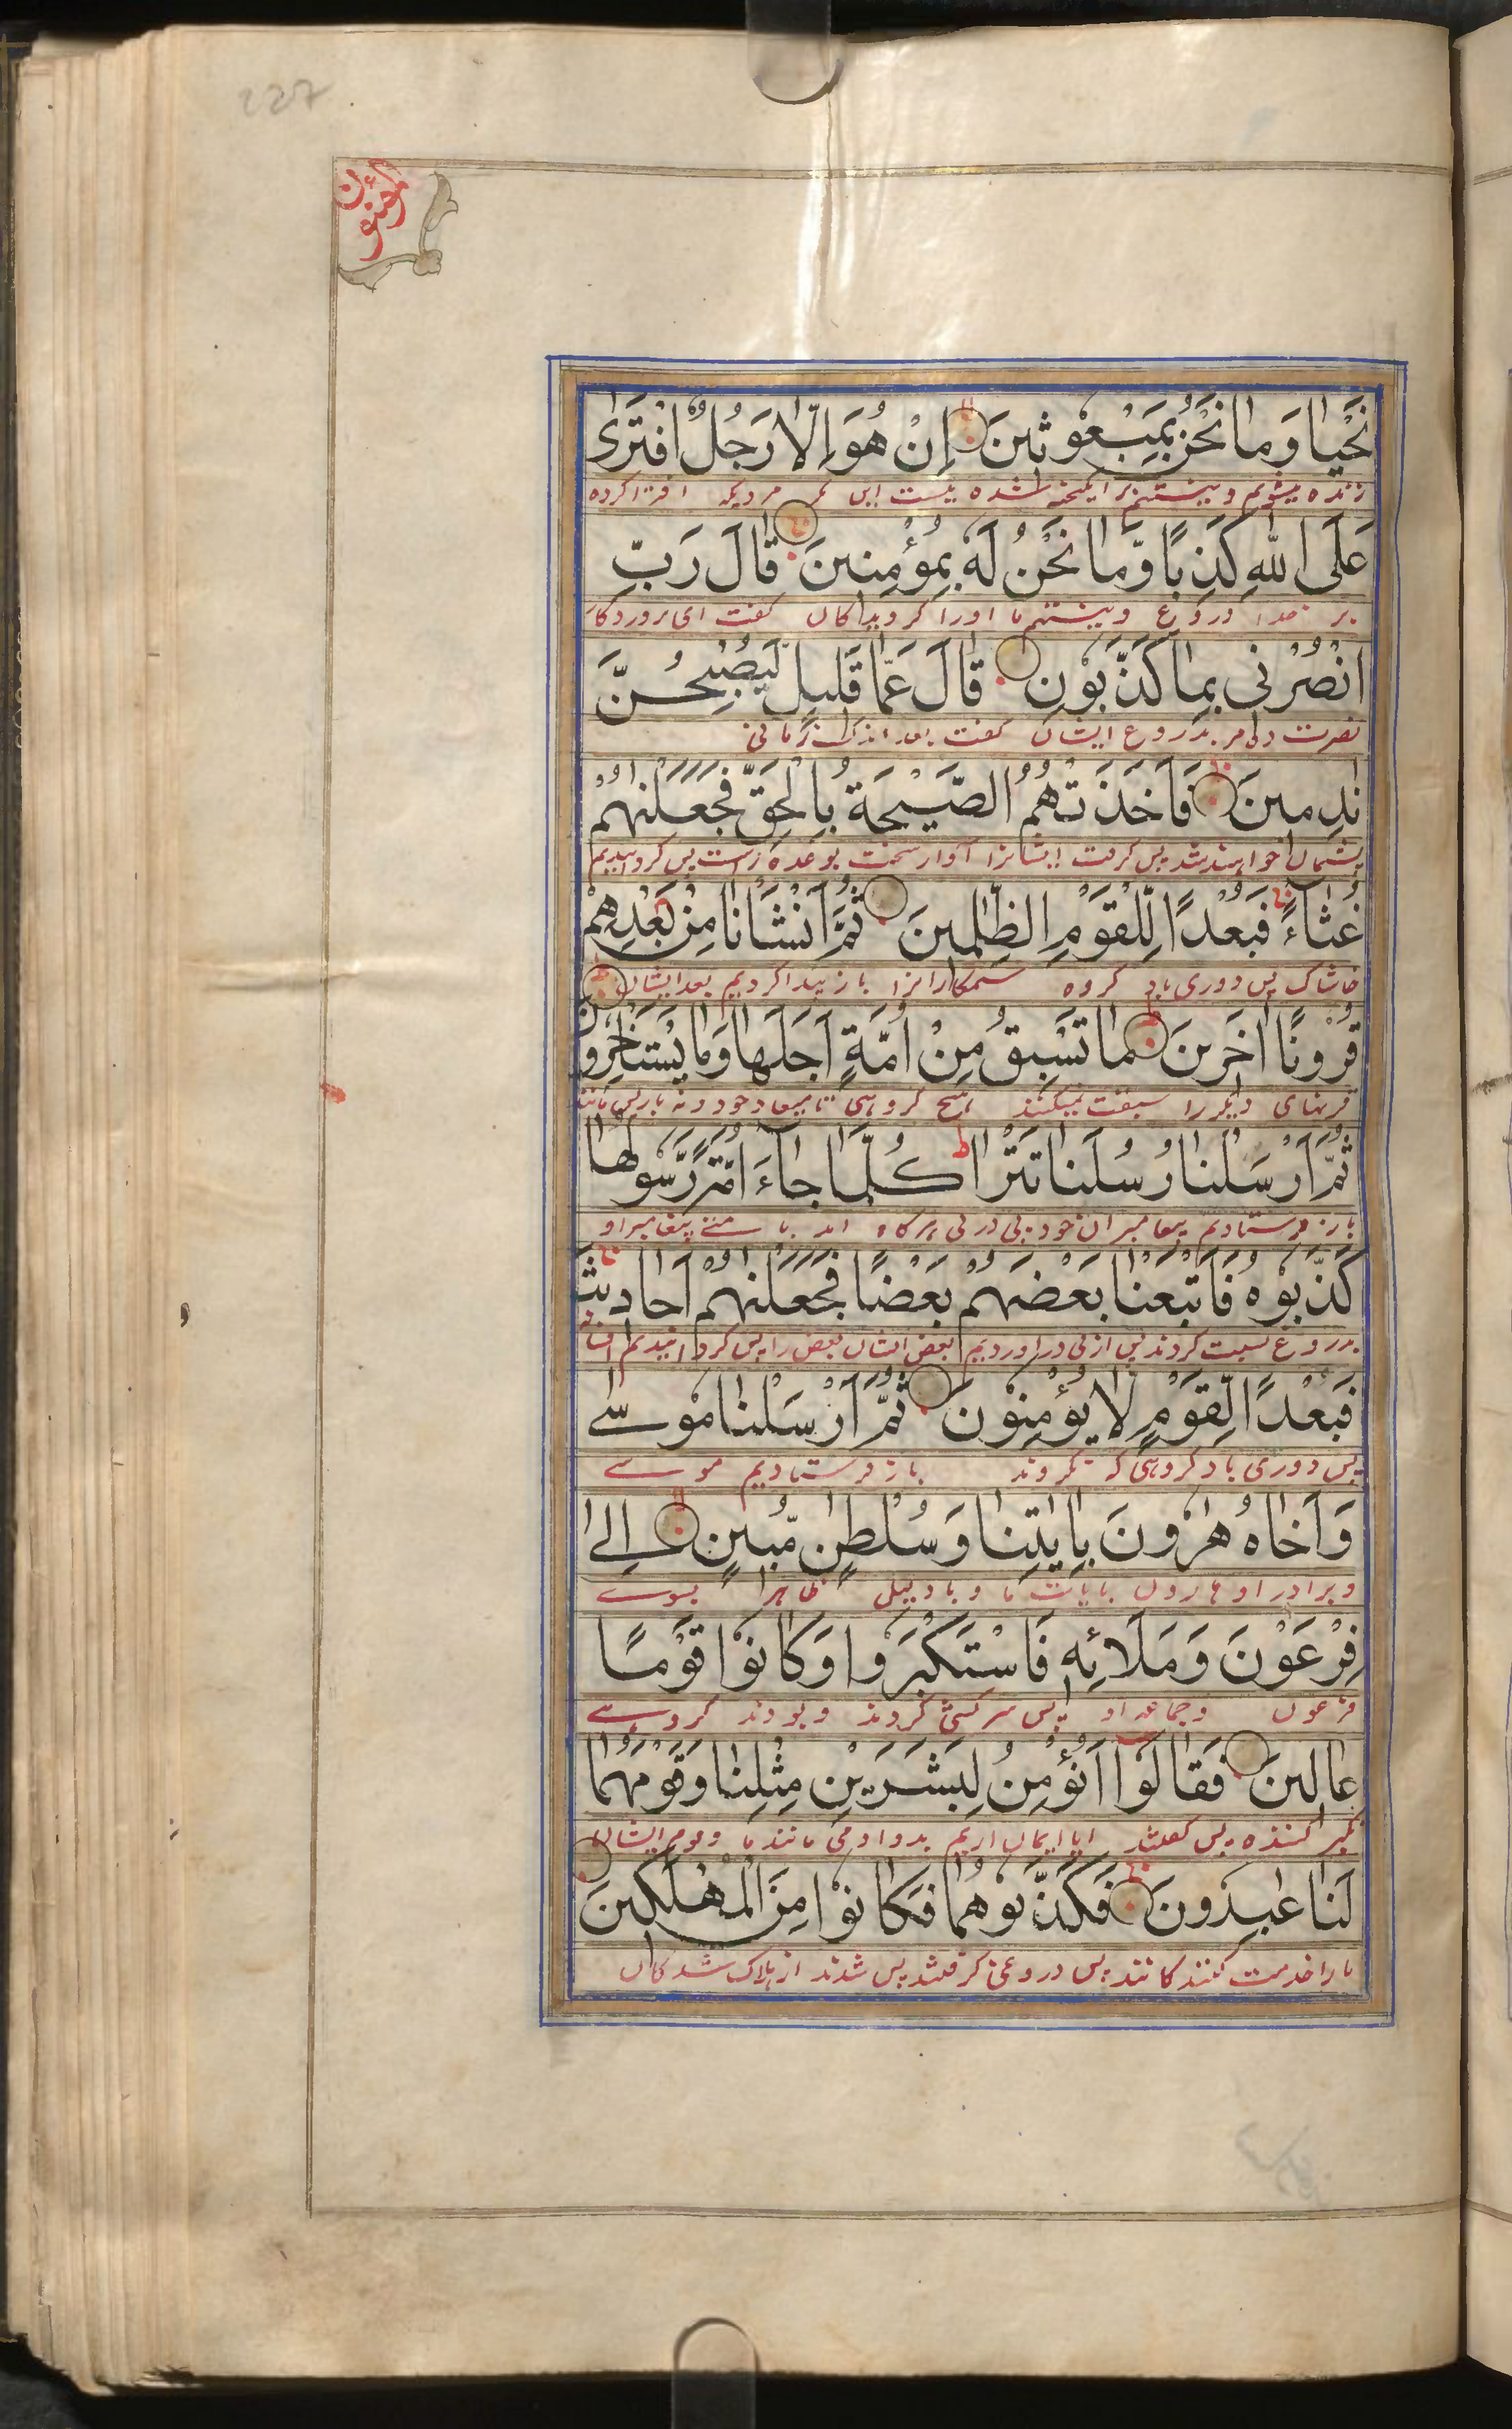 227
المؤمنون
نَحْيَا وَمَا نَحْنُ بِمَبْعُوثِينَ اِنْ هُوَ اِلَّا رَجُلُ افْتَرٰى
زنده میشویم و نیستیم برانگیخته شده نیست این مگر مردیکه افترا کرده
عَلَى اللّٰهِ كَذِبًا وَّمَا نَحْنُ لَهٗ بِمُؤْمِنِينَ قَالَ رَبِّ
بر خدا دروغ و نیستیم ما اورا گرویدگان گفت ای پروردگار
انْصُرْنِي بِمَا كَذَّبُوْنِ قَالَ عَمَّا قَلِيلٍ لَّيُصْبِحُنَّ
نصرت ده مر بدروغ ایشان گفت بعد اندک زمانی
نٰدِمِينَ فَاَخَذَتْهُمُ الصَّيْحَةُ بِالْحَقِّ فَجَعَلْنٰهُمْ
پشیمان خواهند شد پس گرفت ایشانرا آواز سخت بوعده راست پس گردانیدیم
غُثَآءً فَبُعْدًا لِّلْقَوْمِ الظّٰلِمِينَ ثُمَّ اَنْشَاْنَا مِنْ بَعْدِهِمْ
خاشاک پس دوری باد گروه ستمکارانرا باز پیدا کردیم بعد ایشان
قُرُوْنًا اٰخَرِينَ مَا تَسْبِقُ مِنْ اُمَّةٍ اَجَلَهَا وَمَا يَسْتَاْخِرُوْنَ
قرنهای دیگر را سبقت نمیکنند هیچ گروهی تا میعاد خود و نه باز پس مانند
ثُمَّ اَرْسَلْنَا رُسُلَنَا تَتْرَا كُلَّمَا جَآءَ اُمَّةً رَّسُوْلُهَا
باز فرستادیم پیغامبران خود پی در پی هرگاه امد با پیغامبر او
كَذَّبُوْهُ فَاَتْبَعْنَا بَعْضَهُمْ بَعْضًا فَجَعَلْنٰهُمْ اَحَادِيثَ
بدروغ نسبت کردند پس از پی در اوردیم بعض ایشان بعض را پس گردانیدیم افسانه
فَبُعْدًا لِّقَوْمٍ لَّا يُؤْمِنُوْنَ ثُمَّ اَرْسَلْنَا مُوْسٰے
پس دوری باد گروهی که نگروند باز فرستادیم موسے
وَاَخَاهُ هٰرُوْنَ بِاٰيٰتِنَا وَسُلْطٰنٍ مُّبِينٍ اِلٰى
و برادر او هارون بایات ما و با دلیلی ظاهر بسوے
فِرْعَوْنَ وَمَلَائِهٖ فَاسْتَكْبَرُوا وَكَانُوْا قَوْمًا
فرعون و جماعه او پس سرکشی کردند و بودند گروہے
عَالِينَ فَقَالُوْا اَنُؤْمِنُ لِبَشَرَيْنِ مِثْلِنَا وَقَوْمُهُمَا
تکبر کننده پس گفتند ایا ایمان اریم بدو ادمی مانند ما و قوم ایشان
لَنَا عٰبِدُونَ فَكَذَّبُوْهُمَا فَكَانُوْا مِنَ الْمُهْلَكِينَ
ما را خدمت کنندگانند پس دروغی گرفتند پس شدند از هلاک شدگان